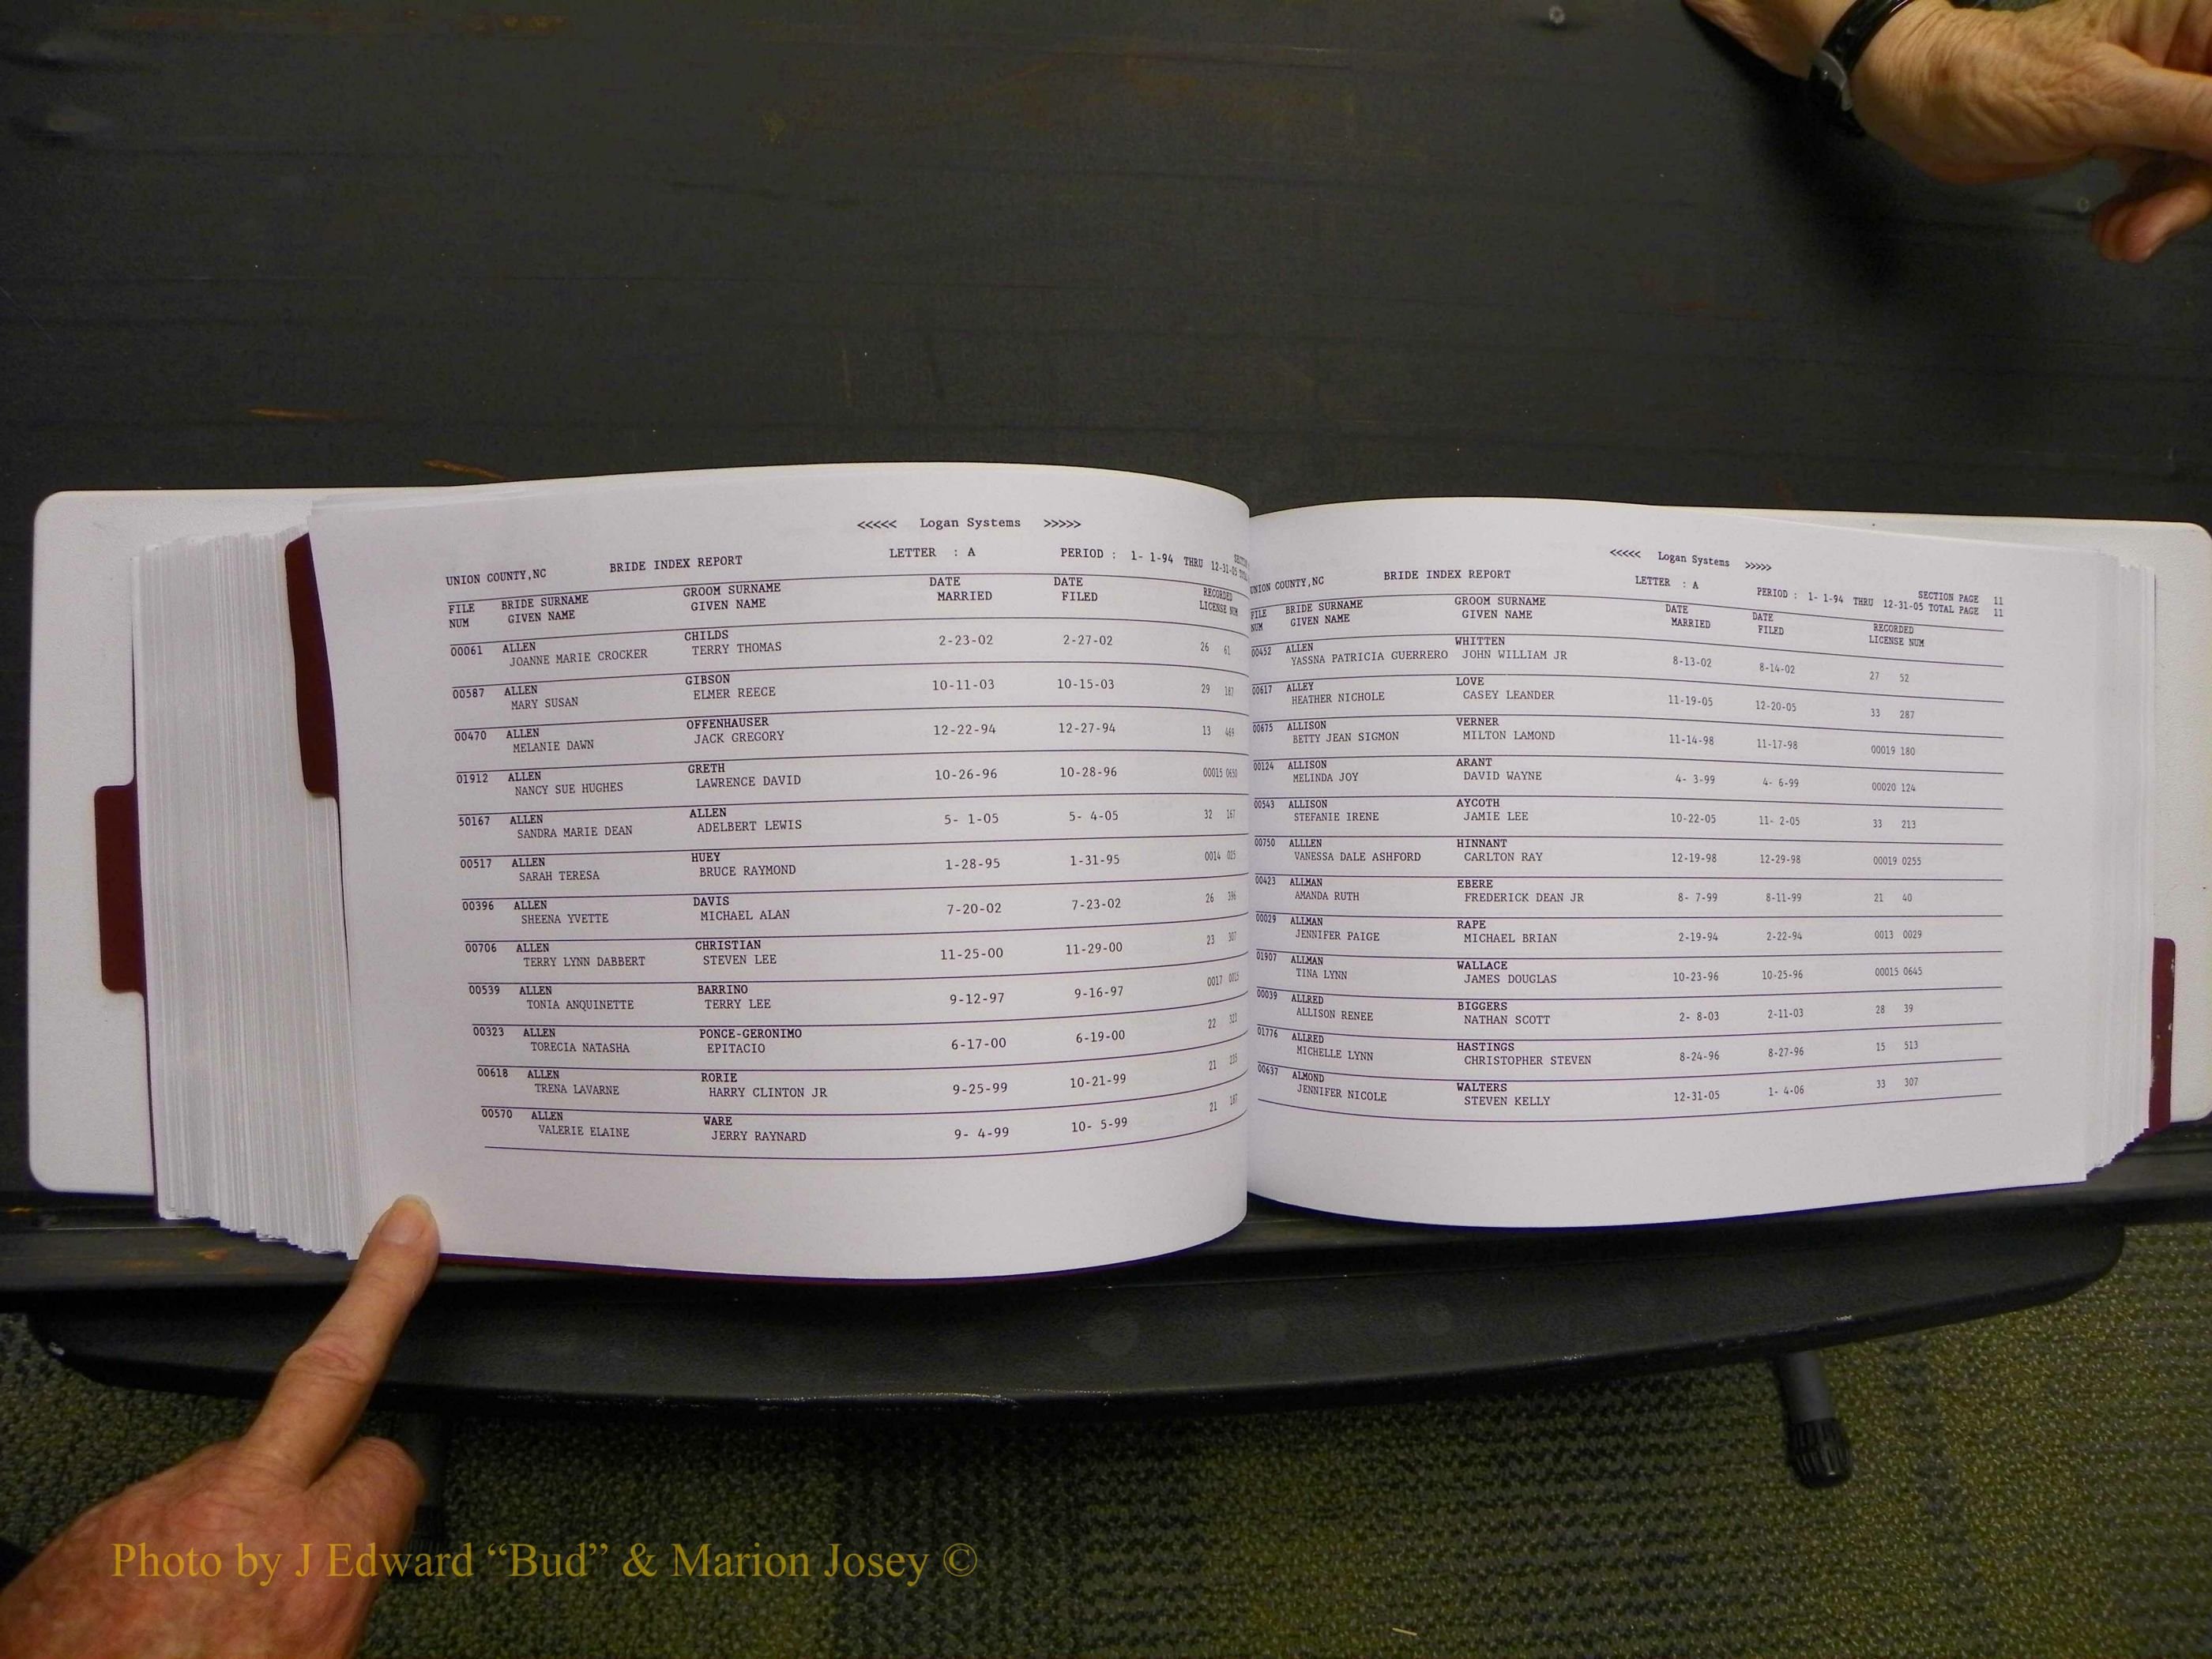 <<<<< Logan Systems >>>>>
UNION COUNTY,NC BRIDE INDEX REPORT LETTER : A PERIOD : 1- 1-94 THRU 12-31-05
FILE BRIDE SURNAME GROOM SURNAME DATE DATE RECORDED
NUM GIVEN NAME GIVEN NAME MARRIED FILED LICENSE NUM
00061 ALLEN CHILDS 2-23-02 2-27-02 26
JOANNE MARIE CROCKER TERRY THOMAS
00587 ALLEN GIBSON 10-11-03 10-15-03 29 187
MARY SUSAN ELMER REECE
00470 ALLEN OFFENHAUSER 12-22-94 12-27-94 13 469
MELANIE DAWN JACK GREGORY
01912 ALLEN GRETH 10-26-96 10-28-96 00015 0650
NANCY SUE HUGHES LAWRENCE DAVID
50167 ALLEN ALLEN 5- 1-05 5- 4-05 32 167
SANDRA MARIE DEAN ADELBERT LEWIS
00517 ALLEN HUEY 1-28-95 1-31-95 0014 025
SARAH TERESA BRUCE RAYMOND
00396 ALLEN DAVIS 7-20-02 7-23-02 26 396
SHEENA YVETTE MICHAEL ALAN
00706 ALLEN CHRISTIAN 11-25-00 11-29-00 23 307
TERRY LYNN DABBERT STEVEN LEE
00539 ALLEN BARRINO 9-12-97 9-16-97 0017
TONIA ANQUINETTE TERRY LEE
00323 ALLEN PONCE-GERONIMO 6-17-00 6-19-00 22 323
TORECIA NATASHA EPITACIO
00618 ALLEN RORIE 9-25-99 10-21-99 21
TRENA LAVARNE HARRY CLINTON JR
00570 ALLEN WARE 9- 4-99 10- 5-99 21 187
VALERIE ELAINE JERRY RAYNARD
<<<<< Logan Systems >>>>>
UNION COUNTY,NC BRIDE INDEX REPORT LETTER : A PERIOD : 1- 1-94 THRU 12-31-05 SECTION PAGE 11
TOTAL PAGE 11
FILE BRIDE SURNAME GROOM SURNAME DATE DATE RECORDED
NUM GIVEN NAME GIVEN NAME MARRIED FILED LICENSE NUM
00452 ALLEN WHITTEN 8-13-02 8-14-02 27 52
YASSNA PATRICIA GUERRERO JOHN WILLIAM JR
00617 ALLEY LOVE 11-19-05 12-20-05 33 287
HEATHER NICHOLE CASEY LEANDER
00675 ALLISON VERNER 11-14-98 11-17-98 00019 180
BETTY JEAN SIGMON MILTON LAMOND
00124 ALLISON ARANT 4- 3-99 4- 6-99 00020 124
MELINDA JOY DAVID WAYNE
00543 ALLISON AYCOTH 10-22-05 11- 2-05 33 213
STEFANIE IRENE JAMIE LEE
00750 ALLLEN HINNANT 12-19-98 12-29-98 00019 0255
VANESSA DALE ASHFORD CARLTON RAY
00423 ALLMAN EBERE 8- 7-99 8-11-99 21 40
AMANDA RUTH FREDERICK DEAN JR
00029 ALLMAN RAPE 2-19-94 2-22-94 0013 0029
JENNIFER PAIGE MICHAEL BRIAN
01907 ALLMAN WALLACE 10-23-96 10-25-96 00015 0645
TINA LYNN JAMES DOUGLAS
00039 ALLRED BIGGERS 2- 8-03 2-11-03 28 39
ALLISON RENEE NATHAN SCOTT
01776 ALLRED HASTINGS 8-24-96 8-27-96 15 513
MICHELLE LYNN CHRISTOPHER STEVEN
00637 ALMOND WALTERS 12-31-05 1- 4-06 33 307
JENNIFER NICOLE STEVEN KELLY
Photo by J Edward “Bud” & Marion Josey ©